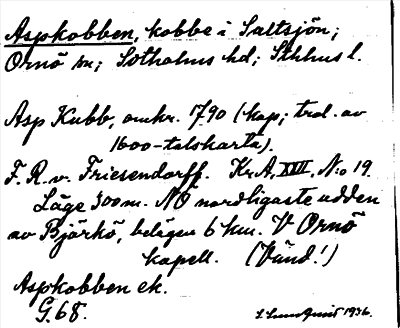 Aspkobben, kobbe i Saltsjön;
Ornö sn; Sotholms hd; Sthlms l.
Asp Kubb, omkr. 1790 (kap; trol. av
1600-talskarta).
F. R. v. Friesendorff. Kr.A. XVII, N:o 19.
Läge 300 m. NO nordligaste udden
av Björkö, belägen 6 km. V Ornö
kapell. (Vänd!)
Aspkobben ek.
G.68.
1936.